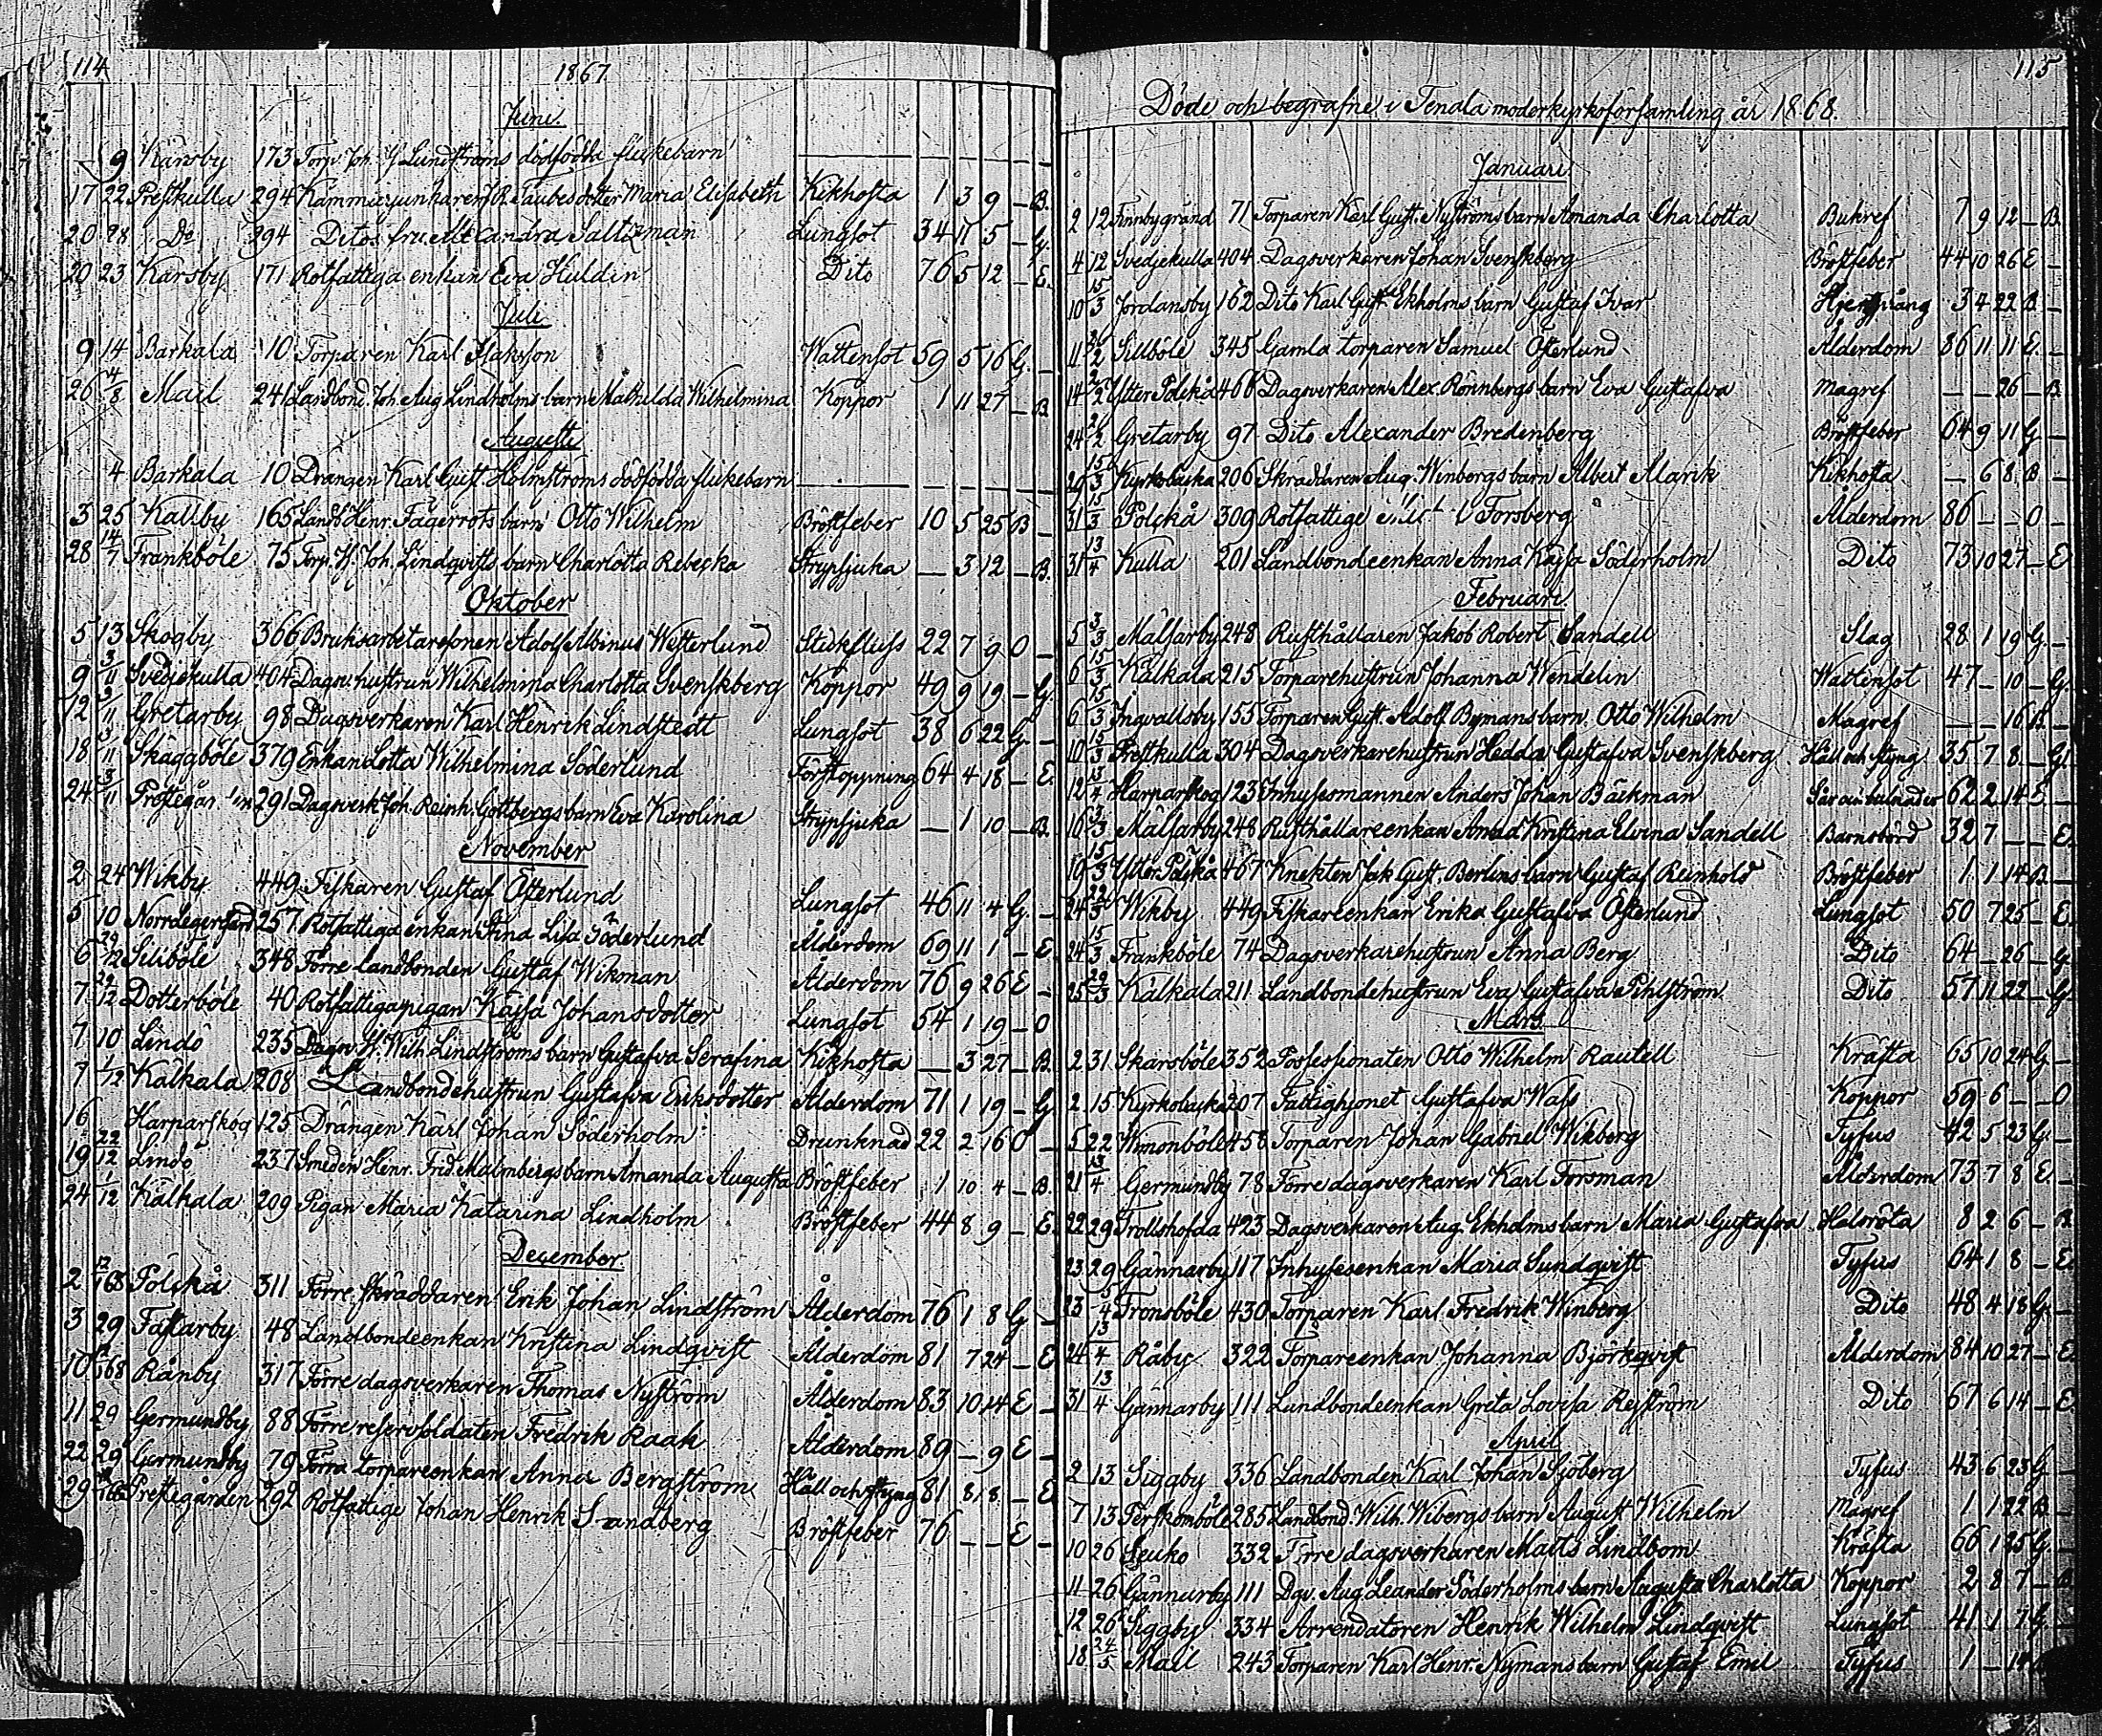 114
1867
Juni.
9 Karsby 173 Torp. Joh. Hj. Lundströms dödfödda flickebarn — — — — —
17 22 Prestkulla 294 Kammarjunkaren R. Taubes dotter Maria Elisabeth Kikhosta 1 3 9 _ B.
20 28 Do 294 Ditos fru Alexandra Saltzman Lungsot 34 11 5 _ G.
20 23 Karsby 171 Rotfattiga enkan Eva Huldin Dito 76 5 12 _ E.
Juli.
9 14 Barkala 10 Torparen Karl Isaksson Wattensot 59 5 16 G. _
26 4/8 Mail 241 Landbond. Joh. Aug. Lindholms barn Mathilda Wilhelmina Koppor 1 11 27 _ B.
Augusti
4 Barkala 10 Drängen Karl Gust. Holmströms dödfödda flickebarn — — — — —
3 25 Kallby 165 Landb. Henr. Fagerrots barn Otto Wilhelm Bröstfeber 10 5 25 B _
28 14/7 Frankböle 75 Torp. H. Joh. Lindqvists barn Charlotta Rebecka Strypsjuka _ 3 12 _ B.
Oktober
5 13 Skogby 366 Bruksarbetaresonen Adolf Albinus Westerlund Stickfluss 22 7 9 O _
9 3/11 Svedjekulla 404 Dagsv. hustrun Wilhelmina Charlotta Svenskberg Koppor 49 9 19 _ G.
12 3/11 Gretarby 98 Dagsverkaren Karl Henrik Lindstedt Lungsot 38 6 22 G. _
18 3/11 Skäggböle 379 Enkan Lotta Wilhelmina Söderlund Förstoppning 64 4 18 _ E.
24 3/11 291 Dagsverk. Joh. Reinh. Gottbergs barn Eva Karolina Strypsjuka _ 1 10 _ B.
November
2 24 Wikby 449 Fiskaren Gustaf Österlund Lungsot 46 11 4 G. _
5 10 257 Rotfattiga enkan Stina Lisa Söderlund Ålderdom 69 11 1 _ E.
6 29/12 Sillböle 348 Förre landbonden Gustaf Wikman Ålderdom 76 9 26 E _
7 29/12 Dotterböle 40 Rotfattiga pigan Kajsa Johansdotter Lungsot 54 1 19 _ O
7 10 Lindö 235 Dagsv. H. Wilh. Lindströms barn Gustafva Serafina Kikhosta _ 3 27 _ B.
7 1/12 Kälkala 208 Landbondehustrun Gustafva Eriksdotter Ålderdom 71 1 19 _ G.
16 Harparskog 125 Drängen Karl Johan Söderholm Drunknad 22 2 16 O _
19 22/12 Lindö 237 Smeden Henr. Fred. Malmbergs barn Amanda Augusta Bröstfeber 1 10 4 _ B.
24 1/12 Kälkala 209 Pigan Maria Katarina Lindholm Bröstfeber 44 8 9 _ E.
December.
2 12/1 68 Polskå 311 Förre skräddaren Erik Johan Lindström Ålderdom 76 1 8 G _
3 29 Fastarby 48 Landbondeenkan Kristina Lindqvist Ålderdom 81 7 24 _ E
10 68 Rånby 317 Förre dagsverkaren Thomas Nyström Ålderdom 83 10 14 E _
11 29 Germundby 88 Förre reservsoldaten Fredrik Raak Ålderdom 89 _ 9 E _
22 29 Germundby 79 Förra torpareenkan Anna Bergström Håll och styng 81 8 8 _ E
29 Prestegården 292 Rotfattige Johan Henrik Sandberg Bröstfeber 76 _ _ E _
115
Döde och begrafne i Tenala moderkyrkoförsamling år 1868.
Januari.
2 12 Finnbygränd 71 Torparen Karl Gust. Nyströms barn Amanda Charlotta Bukref 7 9 12 _ B.
4 12 Svedjekulla 404 Dagsverkaren Johan Svenskberg Bröstfeber 44 10 26 E _
10 15/3 Jordansby 162 Dito Karl Gust. Ekholms barn Gustaf Ivar 3 4 22 B _
11 2/2 Sillböle 345 Gamla torparen Samuel Österlund Ålderdom 86 11 11 E. _
14 2/2 Ytter Polskå 466 Dagsverkaren Alex. Rönnbergs barn Eva Gustafva Magref _ _ 26 _ B.
24 2/2 Gretarby 97 Dito Alexander Bredenberg Bröstfeber 64 9 11 G. _
26 15/3 Kyrkobacka 206 Skräddaren Aug. Winbergs barn Albert Alarik Kikhosta _ 6 8 B _
31 15/3 Polskå 309 Rotfattige Forsberg Ålderdom 86 _ _ O _
31 13/4 Kulla 201 Landbondeenkan Anna Kajsa Söderholm Dito 73 10 27 _ E
Februari.
5 3/3 Malsarby 248 Rusthållaren Jakob Robert Sandell Slag 28 1 19 G. _
6 15/3 Kälkala 215 Torparehustrun Johanna Wendelin Wattensot 47 _ 10 _ G.
6 15/3 Ingvallsby 155 Torparen Gust. Adolf Bymans barn Otto Wilhelm Magref _ _ 16 B. _
10 15/3 Prestkulla 304 Dagsverkarehustrun Hedda Gustafva Svenskberg Håll och styng 35 7 8 _ G.
12 13/4 Harparskog 123 Inhysesmannen Anders Johan Bäckman 62 2 14 E. _
16 3/3 Malsarby 248 Rusthållareenkan Amanda Kristina Elvina Sandell Barnsbörd 32 7 _ _ E.
16 15/3 Ytter Polskå 467 Knekten Jak. Gust. Berlins barn Gustaf Reinhold Bröstfeber 1 1 14 B. _
24 22/3 Wikby 449 Fiskareenkan Erika Gustafva Österlund Lungsot 50 7 25 _ E.
24 15/3 Frankböle 74 Dagsverkarehustrun Anna Berg Dito 64 _ 26 _ G.
25 29/3 Kälkala 211 Landbondehustrun Eva Gustafva Pihlström Dito 57 11 22 _ G.
Mars.
2 31 Skarsböle 352 Possessionaten Otto Wilhelm Rautell Kräfta 65 10 24 G. _
2 15 Kyrkobacka 207 Fattighjonet Gustafva Wass Koppor 59 6 _ _ O
5 22 458 Torparen Johan Gabriel Wikberg Tyfus 42 5 23 G. _
21 13/4 Germundby 78 Förre dagsverkaren Karl Forsman Ålderdom 73 7 8 E. _
22 29 Trollshofda 423 Dagsverkaren Aug. Ekholms barn Maria Gustafva Halsröta 8 2 6 _ B.
23 29 Gännarby 117 Inhysesenkan Maria Sundqvist Tyfus 64 1 8 _ E.
23 5/4 Tronsböle 430 Torparen Karl Fredrik Winberg Dito 48 4 18 G. _
24 13/4 Råby 322 Torpareenkan Johanna Björkqvist Ålderdom 84 10 27 _ E.
31 13/4 Gännarby 111 Landbondeenkan Greta Lovisa Reström Dito 67 6 14 _ E.
April
2 13 Siggby 336 Landbonden Karl Johan Sjöberg Tyfus 43 6 23 G. _
7 13 Perskomböle 285 Landbond. Wilh. Wibergs barn August Wilhelm Magref 1 1 22 B. _
10 26 Seuko 332 Förre dagsverkaren Matts Lindbom Kräfta 66 1 25 G. _
11 26 Gännarby 111 Dgv. Aug. Leander Söderholms barn Augusta Charlotta Koppor 2 8 7 _ B.
12 26 Siggby 334 Arrendatoren Henrik Wilhelm Lindqvist Lungsot 41 1 7 G. _
18 24/5 Mail 243 Torparen Karl Henr. Nymans barn Gustaf Emil Tyfus 1 _ 14